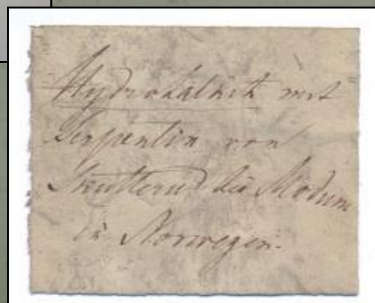 Hydrotalkit mit
Serpentin von
Snutterud bei Modum
in Norwegen.